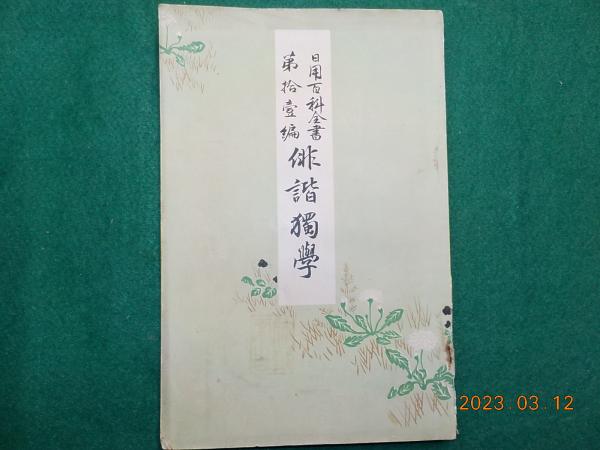 日用百科全書
第拾壹編
俳諧獨學
2023.03.12